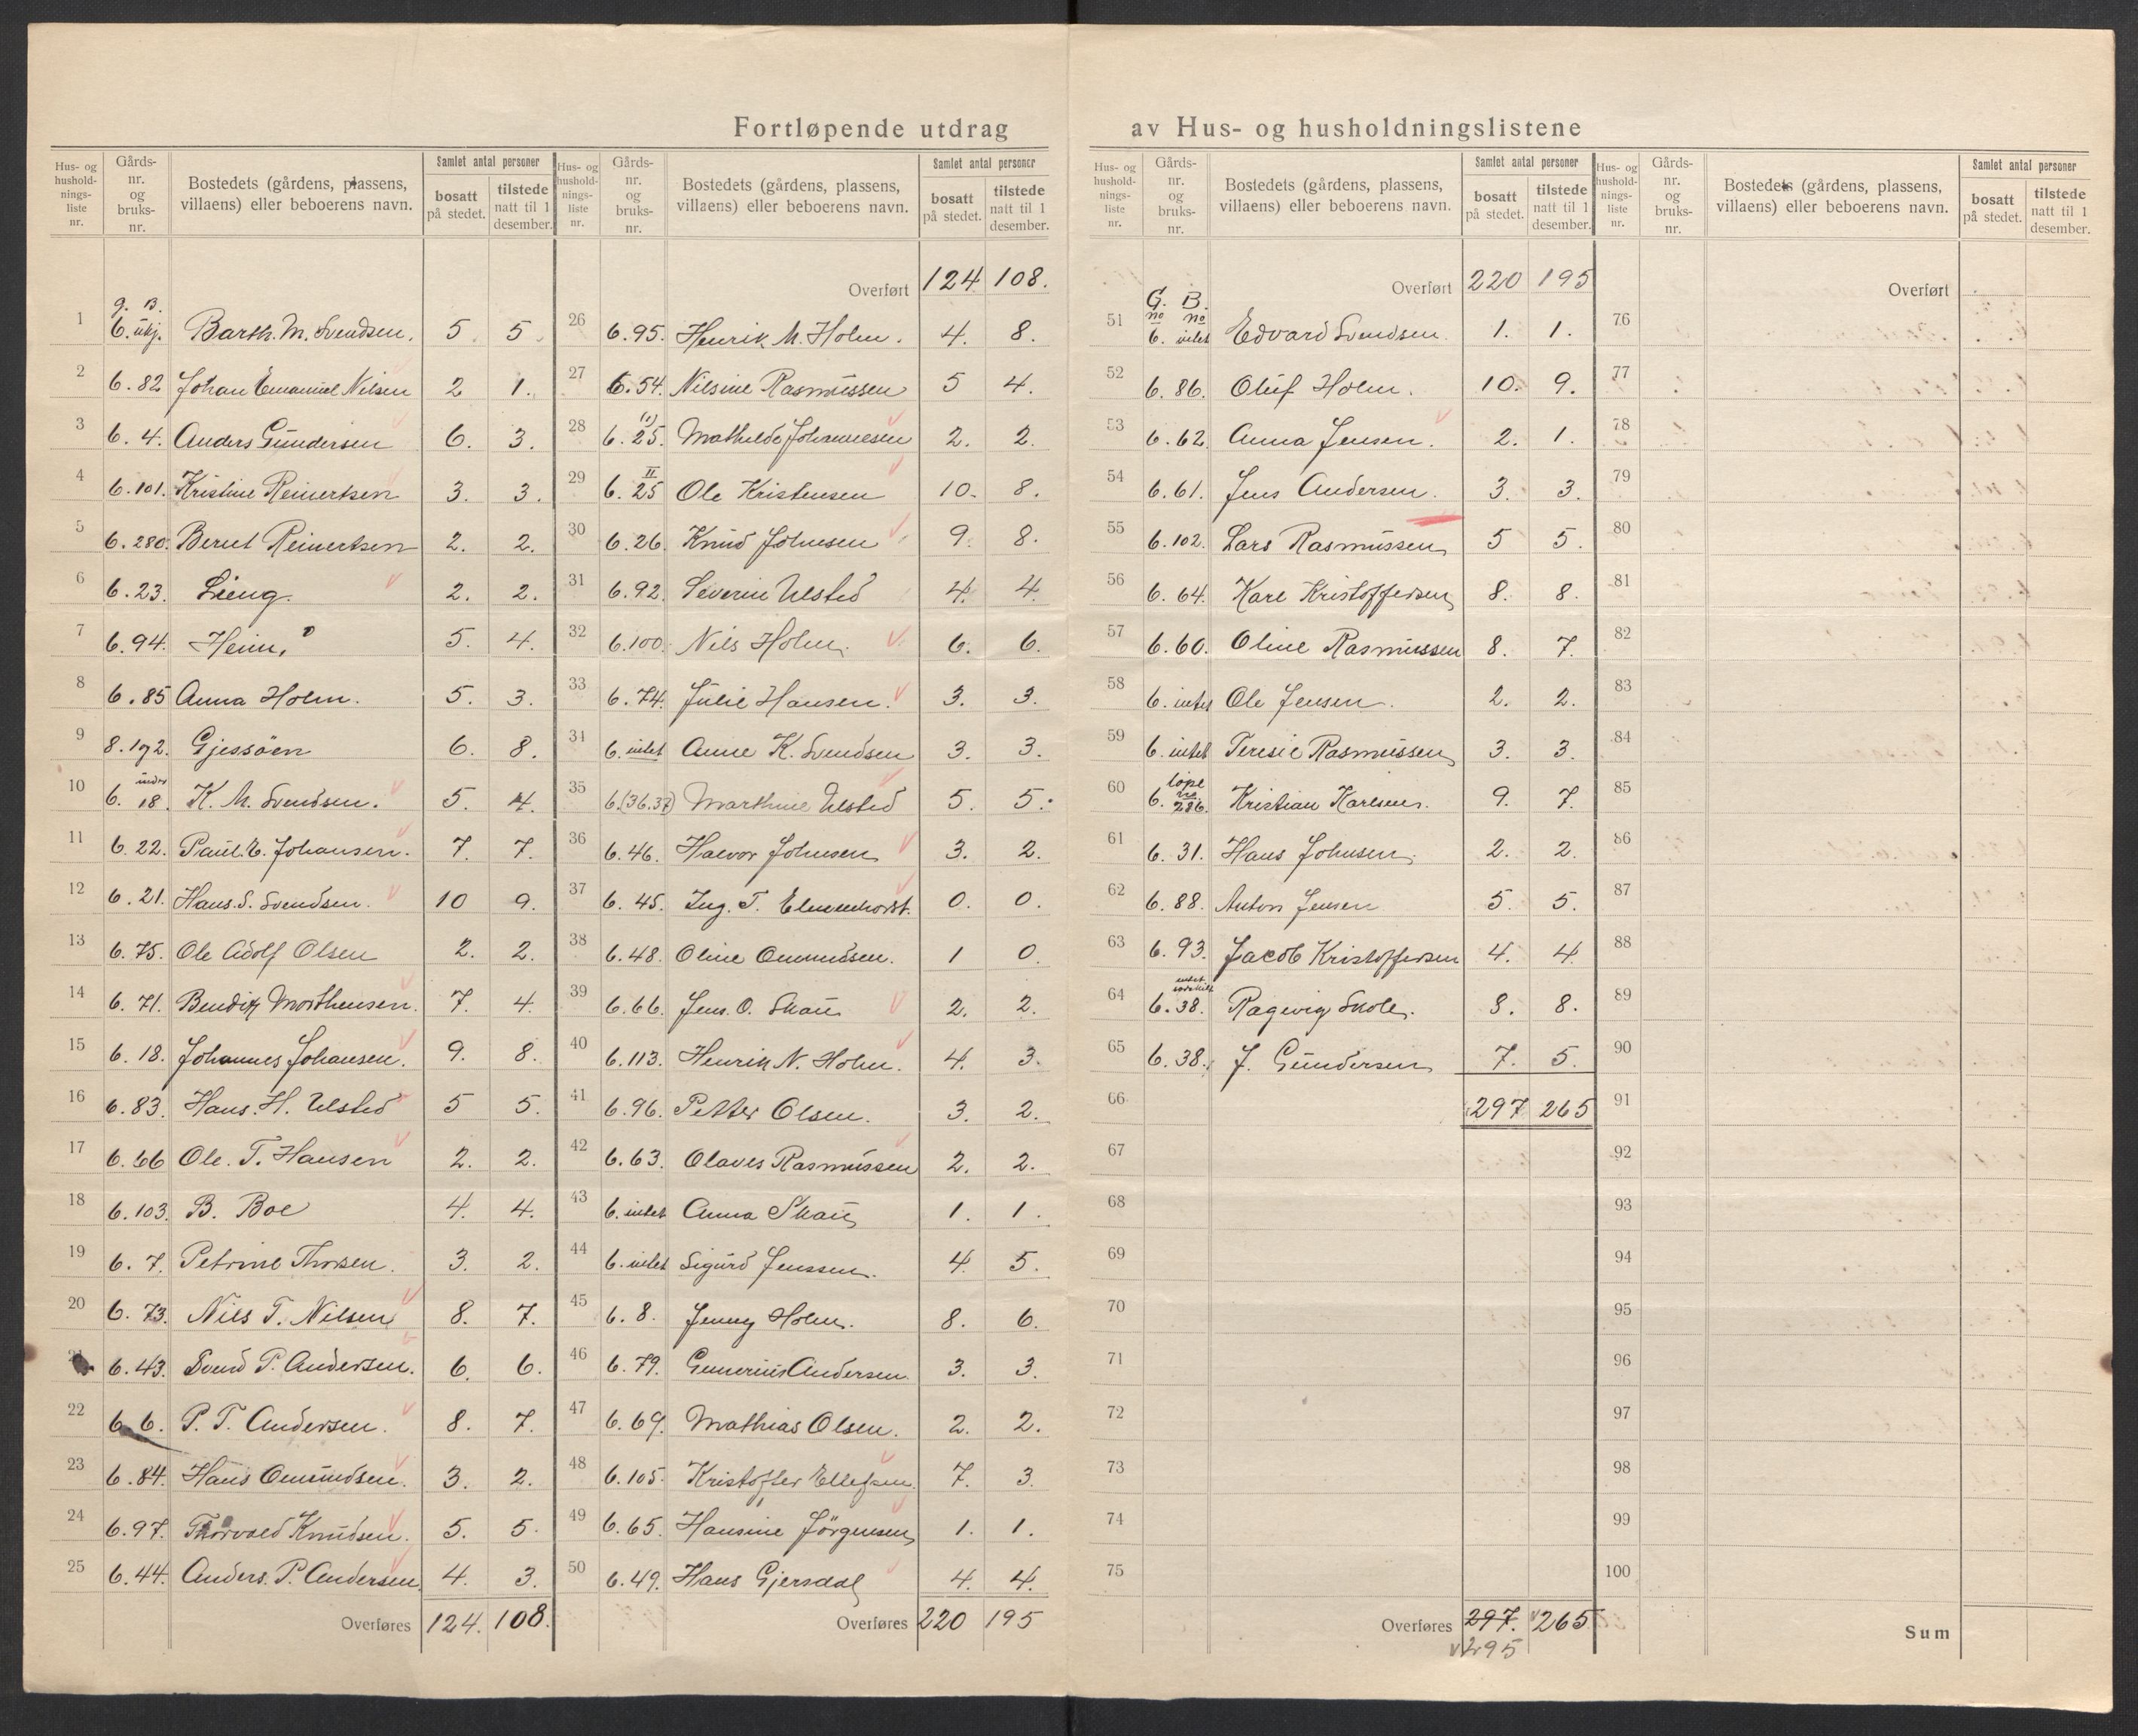 Fortløpende utdrag av Hus- og husholdningslistene
Hus- og husholdnings-liste nr. | Gårds-nr. og bruks-nr. | Bostedets (gårdens, plassens, villaens) eller beboerens navn. | Samlet antal personer bosatt på stedet. | tilstede natt til 1 desember.
g. B.
1 6. ukj. Barth. M. Svendsen. 5 5.
2 6. 82 Johan Emanuel Nilsen 2 1.
3 6. 4. Anders Gundersen 6. 3.
4 6. 101. Kristine Reinertsen 3. 3.
5 6. 280. Bernt Reinertsen 2. 2.
6 6. 23. Lieng. 2. 2.
7 6. 94. Heim. 5. 4.
8 6. 85 Anna Holm. 5. 3.
9 8. 1 og 2. Gjessöen 6. 8.
10 6. under 18. K. M. Svendsen. 5. 4.
11 6. 22. Paul. E. Johansen. 7. 7.
12 6. 21. Hans. S. Svendsen. 10 9.
13 6. 75. Ole Adolf Olsen 2. 2.
14 6. 71. Bendix Morthensen. 7. 4.
15 6. 18. Johannes Johansen. 9. 8.
16 6. 83. Hans. H. Ulsted 5 5.
17 6. 66 Ole. T. Hansen 2. 2.
18 6. 103. B. Boe 4. 4.
19 6. 7. Petrine Thorsen. 3. 2.
20 6. 73. Nils T. Nilsen 8. 7.
21 6. 43. Svend P. Andersen. 6. 6.
22 6 6. P. T. Andersen. 8. 7.
23 6. 84. Hans Omundsen. 3. 2.
24 6. 97. Thorvald Knudsen. 5. 5.
25 6. 44. Anders. P. Andersen. 4. 3.
Overføres 124. 108.
Hus- og husholdnings-liste nr. | Gårds-nr. og bruks-nr. | Bostedets (gårdens, plassens, villaens) eller beboerens navn. | Samlet antal personer bosatt på stedet. | tilstede natt til 1 desember.
Overført 124 108.
26 6. 95. Henrik M. Holm. 4. 8.
27 6. 54. Nilsine Rasmussen 5 4.
28 6. (1) 25. Mathilde Johannesen 2. 2.
29 6. II 25 Ole Kristensen 10. 8.
30 6. 26. Knud Johnsen 9. 8.
31 6. 92. Severin Ulsted 4. 4.
32 6. 100. Nils Holm. 6. 6.
33 6. 74. Julie Hansen. 3. 3.
34 6. intet Anne K. Svendsen 3. 3.
35 6. (36.37) Marthine Ulsted 5. 5.
36 6. 46. Halvor Johnsen 3. 2.
37 6. 45. Ing. T. Elmenhorst. 0. 0.
38 6. 48. Oline Omundsen. 1 0.
39 6. 66. Jens. O. Skau 2. 2.
40 6. 113. Henrik N. Holm. 4. 3.
41 6. 96. Petter Olsen. 3. 2.
42 6. 63. Olaves Rasmussen 2. 2.
43 6. intet Anna Skau 1. 1.
44 6. intet Sigurd Jenssen. 4. 5.
45 6. 8. Jenny Holm. 8. 6.
46 6. 79. Gunerius Andersen. 3. 3.
47 6. 69. Mathias Olsen. 2. 2.
48 6. 105. Kristoffer Ellefsen. 7. 3.
49 6. 65. Hansine Jörgensen 1. 1.
50 6. 49. Hans Gjersdal 4. 4.
Overføres 220 195
Hus- og husholdnings-liste nr. | Gårds-nr. og bruks-nr. | Bostedets (gårdens, plassens, villaens) eller beboerens navn. | Samlet antal personer bosatt på stedet. | tilstede natt til 1 desember.
Overført 220 195
G. B.
no no
51 6. intet Edvard Svendsen. 1. 1.
52 6. 86. Oluf Holm. 10. 9.
53 6. 62. Anna Jensen. 2. 1.
54 6. 61. Jens Andersen. 3. 3.
55 6. 102. Lars Rasmussen 5 5.
56 6. 64. Karl Kristoffersen 8. 8.
57 6. 60. Oline Rasmussen 8. 7.
58 6. intet Ole Jensen. 2. 2.
59 6. intet Teresie Rasmussen 3. 3.
60 6. löpe no. 286. Kristian Karlsen. 9. 7.
61 6. 31. Hans Johnsen. 2. 2.
62 6. 88. Anton Jensen 5. 5.
63 6. 93. Jacob Kristoffersen 4. 4.
64 6. 38. Ragevig Skole. 8. 8.
65 6. 38. J. Gundersen 7. 5.
66 297 265
67
68
69
70
71
72
73
74
75
Overføres 297. 265
295
Hus- og husholdnings-liste nr. | Gårds-nr. og bruks-nr. | Bostedets (gårdens, plassens, villaens) eller beboerens navn. | Samlet antal personer bosatt på stedet. | tilstede natt til 1 desember.
Overført
76
77
78
79
80
81
82
83
84
85
86
87
88
89
90
91
92
93
94
95
96
97
98
99
100
Sum